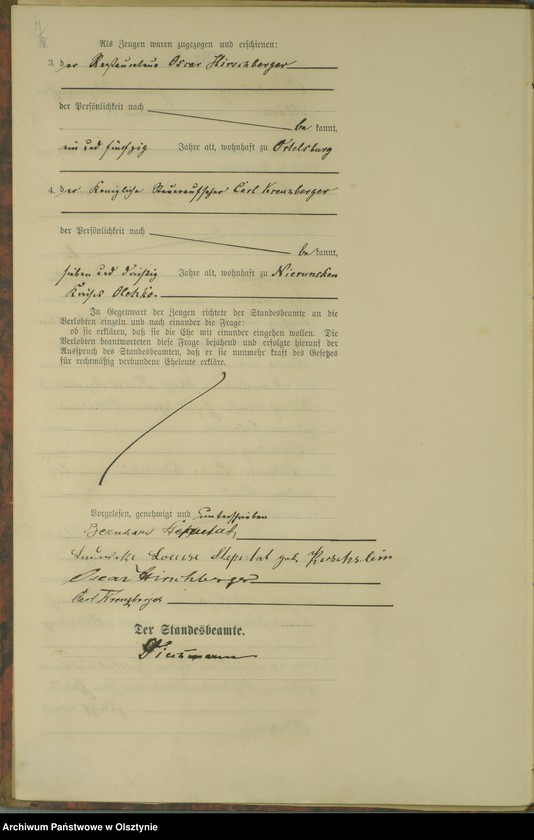 Als Zeugen waren zugezogen und erschienen:
3. der Restaurateur Oscar Hirschberger
der Persönlichkeit nach
be kannt,
ein und fünfzig Jahre alt, wohnhaft zu Ortelsburg
4. der Königliche Steueraufseher Carl Kreuzberger
der Persönlichkeit nach
be kannt,
sieben und dreißig Jahre alt, wohnhaft zu
Kreises Oletzko.
In Gegenwart der Zeugen richtete der Standesbeamte an die
Verlobten einzeln und nach einander die Frage:
ob sie erklären, daß sie die Ehe mit einander eingehen wollen. Die
Verlobten beantworteten diese Frage bejahend und erfolgte hierauf der
Ausspruch des Standesbeamten, daß er sie nunmehr kraft des Gesetzes
für rechtmäßig verbundene Eheleute erkläre.
Vorgelesen, genehmigt und unterschrieben
Bernhard
Louise geb.
Oscar Hirschberger
Carl Kreuzberger
Der Standesbeamte.
Archiwum Państwowe w Olsztynie